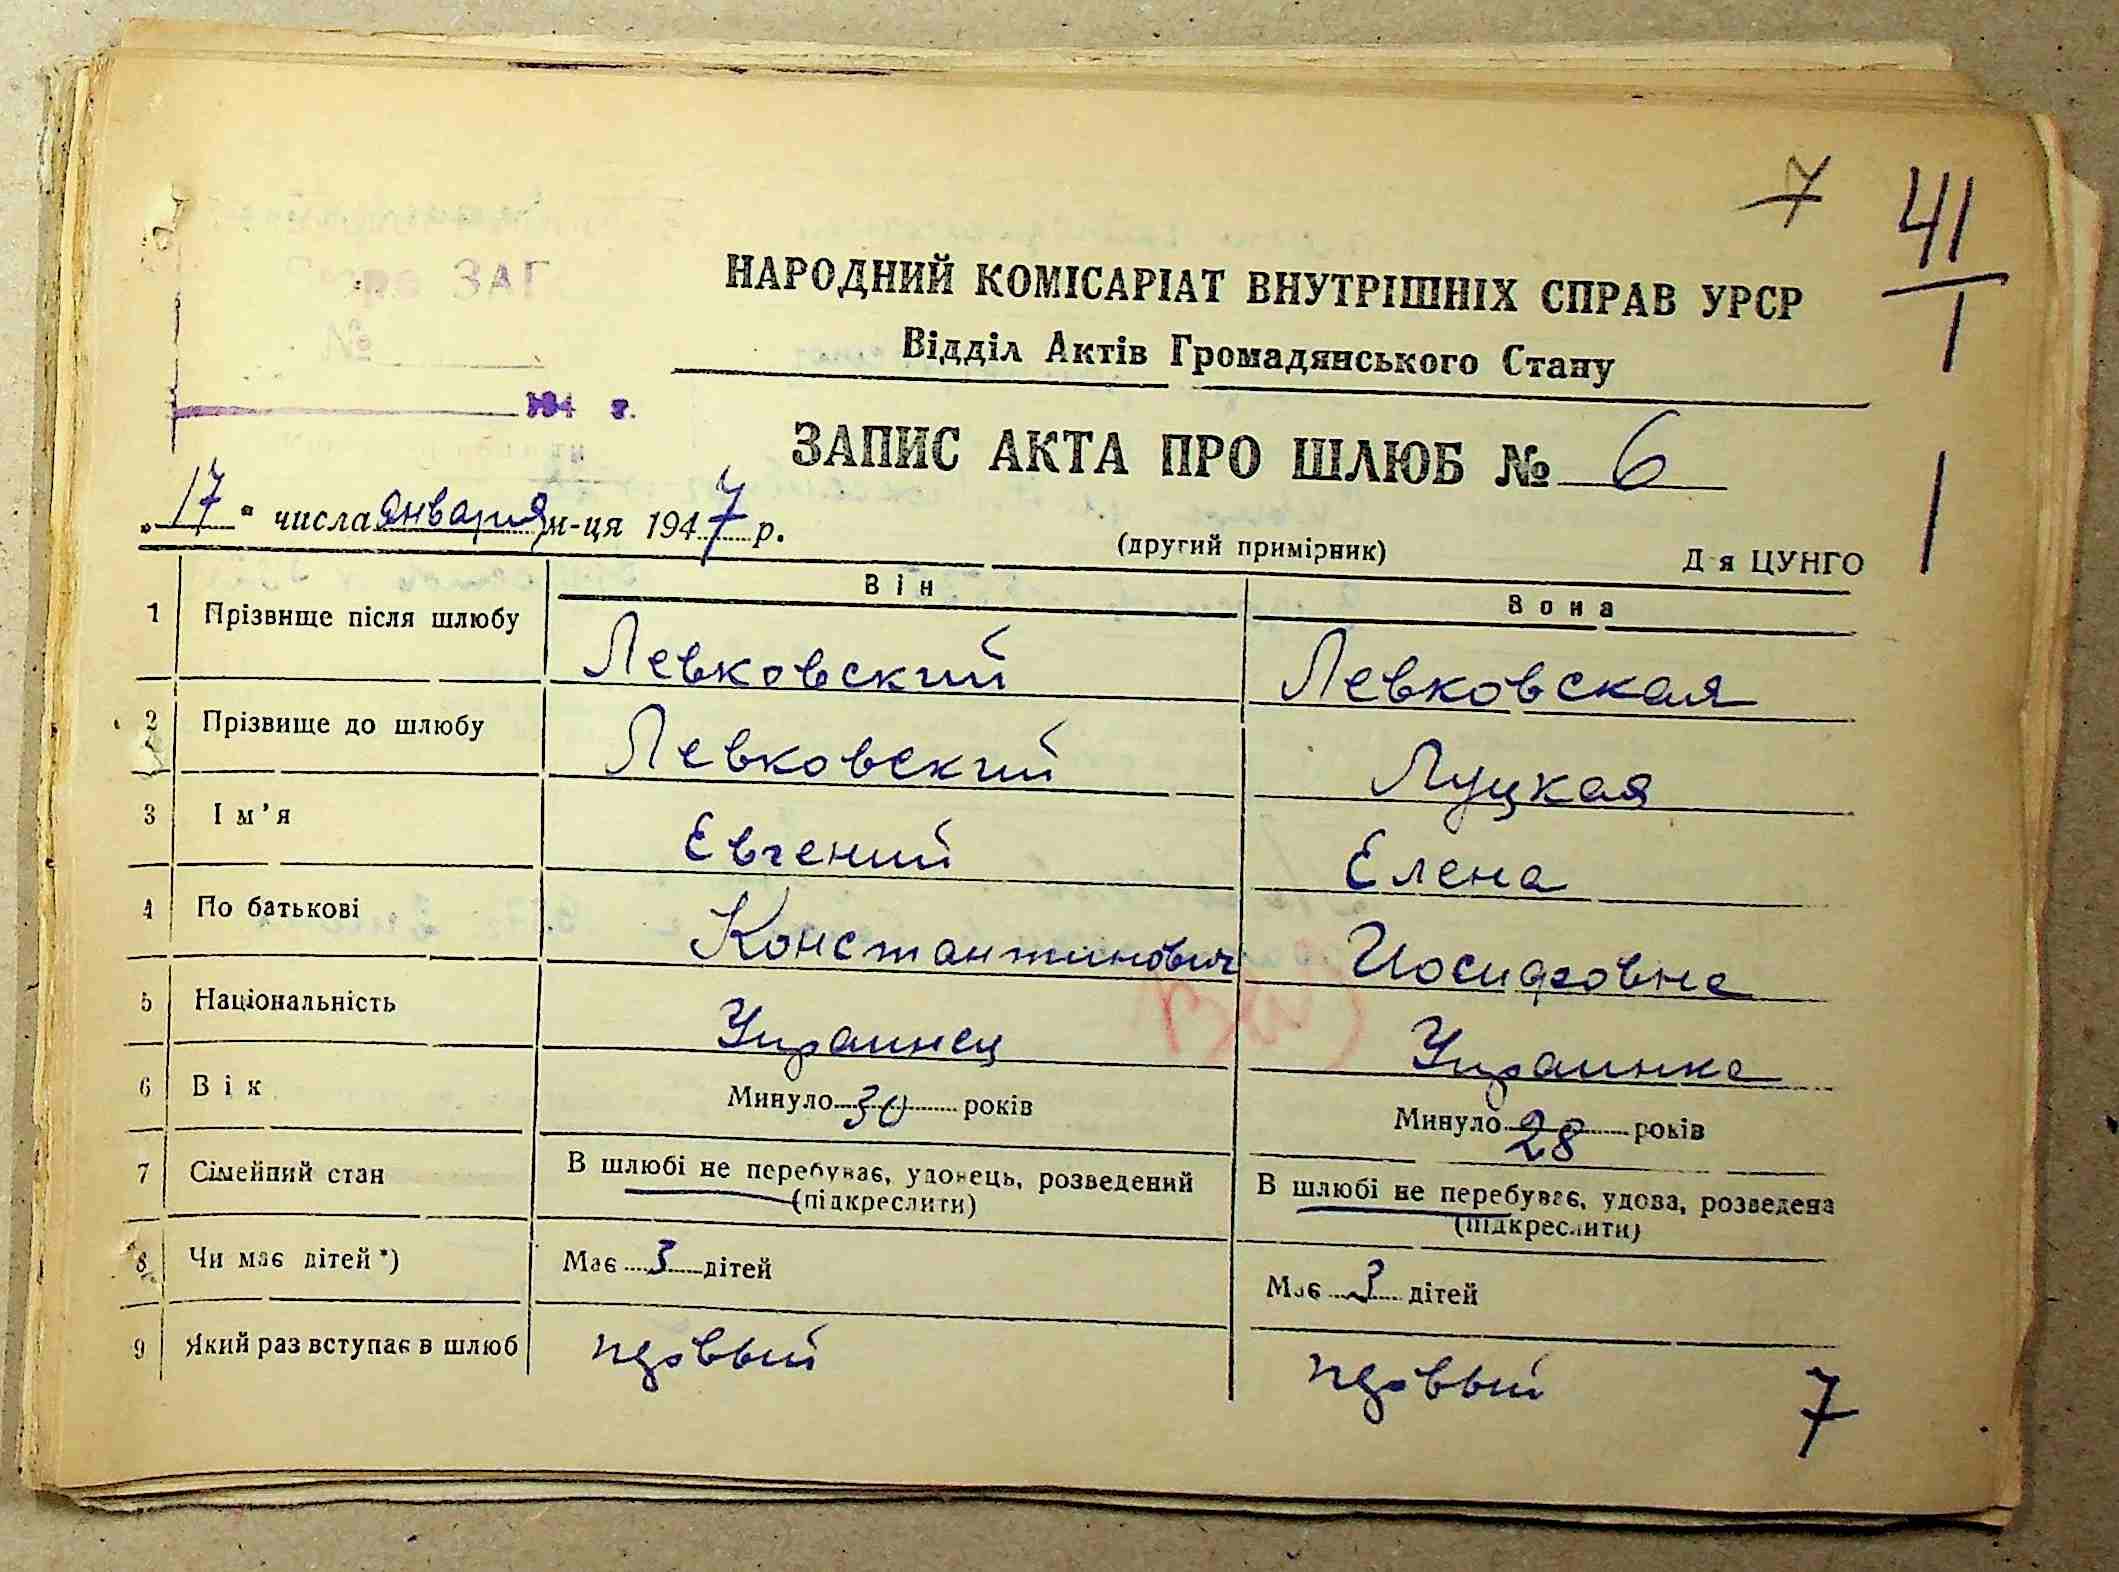 7
41
1
1
НАРОДНИЙ КОМІСАРІАТ ВНУТРІШНІХ СПРАВ УРСР
Відділ Актів Громадянського Стану
ЗАГ
№
194 г.
ЗАПИС АКТА ПРО ШЛЮБ № 6
„17“ числа января м-ця 1947 р.
(другий примірник)
Д-я ЦУНГО
Він
Вона
1 Прізвище після шлюбу Левковский Левковская
2 Прізвище до шлюбу Левковский Луцкая
3 Ім’я Евгений Елена
4 По батькові Константинович Иосифовна
5 Національність Украинец Украинка
6 Вік Минуло 30 років Минуло 28 років
7 Сімейний стан В шлюбі не перебуває, удовець, розведений В шлюбі не перебуває, удова, розведена
(підкреслити) (підкреслити)
8 Чи має дітей*) Має 3 дітей Має 3 дітей
9 Який раз вступає в шлюб первый первый
7